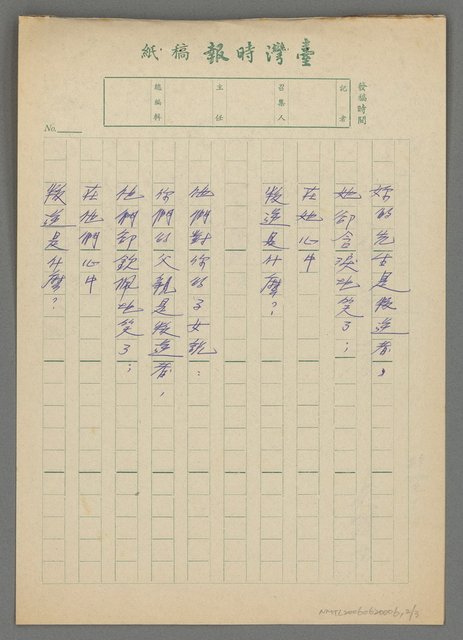 臺灣時報稿紙
發稿時間
記者
召集人
主任
總編輯
No.
妳的先生是叛逆者，
她卻含淚地笑了；
在她心中
叛逆是什麼？
他們對你的子女說：
你們的父親是叛逆者，
他們卻欽佩地笑了；
在他們心中
叛逆是什麼？
NMTL20060620006, 2/3